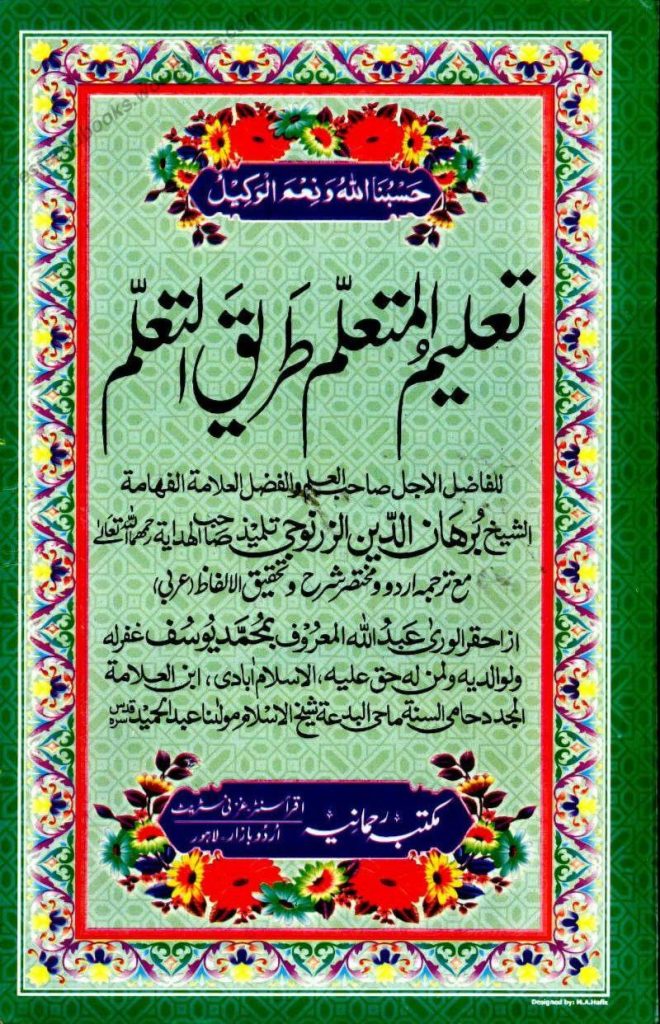 حَسْبُنَا اللهُ وَنِعْمَ الْوَكِيْلُ
تعلیمُ المتعلّم طَرِیقَ التعلّم
للفاضل الاجل صاحب العلم والفضل العلامة الفهامة
الشیخ بُرهَان الدّین الزرنوجی تلمیذ صاحب الهدایة رحمهما اللہ تعالیٰ
مع ترجمہ اردو و مختصر شرح و تحقیق الالفاظ (عربی)
از احقر الوریٰ عَبدُ اللہ المعروف بمُحمّد یُوسُف غفرله
ولوالدیه ولمن له حق علیه، الاسلام اٰبادی، ابن العلامة
المجدد حامی السنة ماحی البدعة شیخ الاسلام مولٰنا عبد الحمید قدس سره
مکتبہ رحمانیہ
اقرأ سنٹر غزنی سٹریٹ
اُردُو بازار۔ لاہور
Designed by: M.A.Hafiz